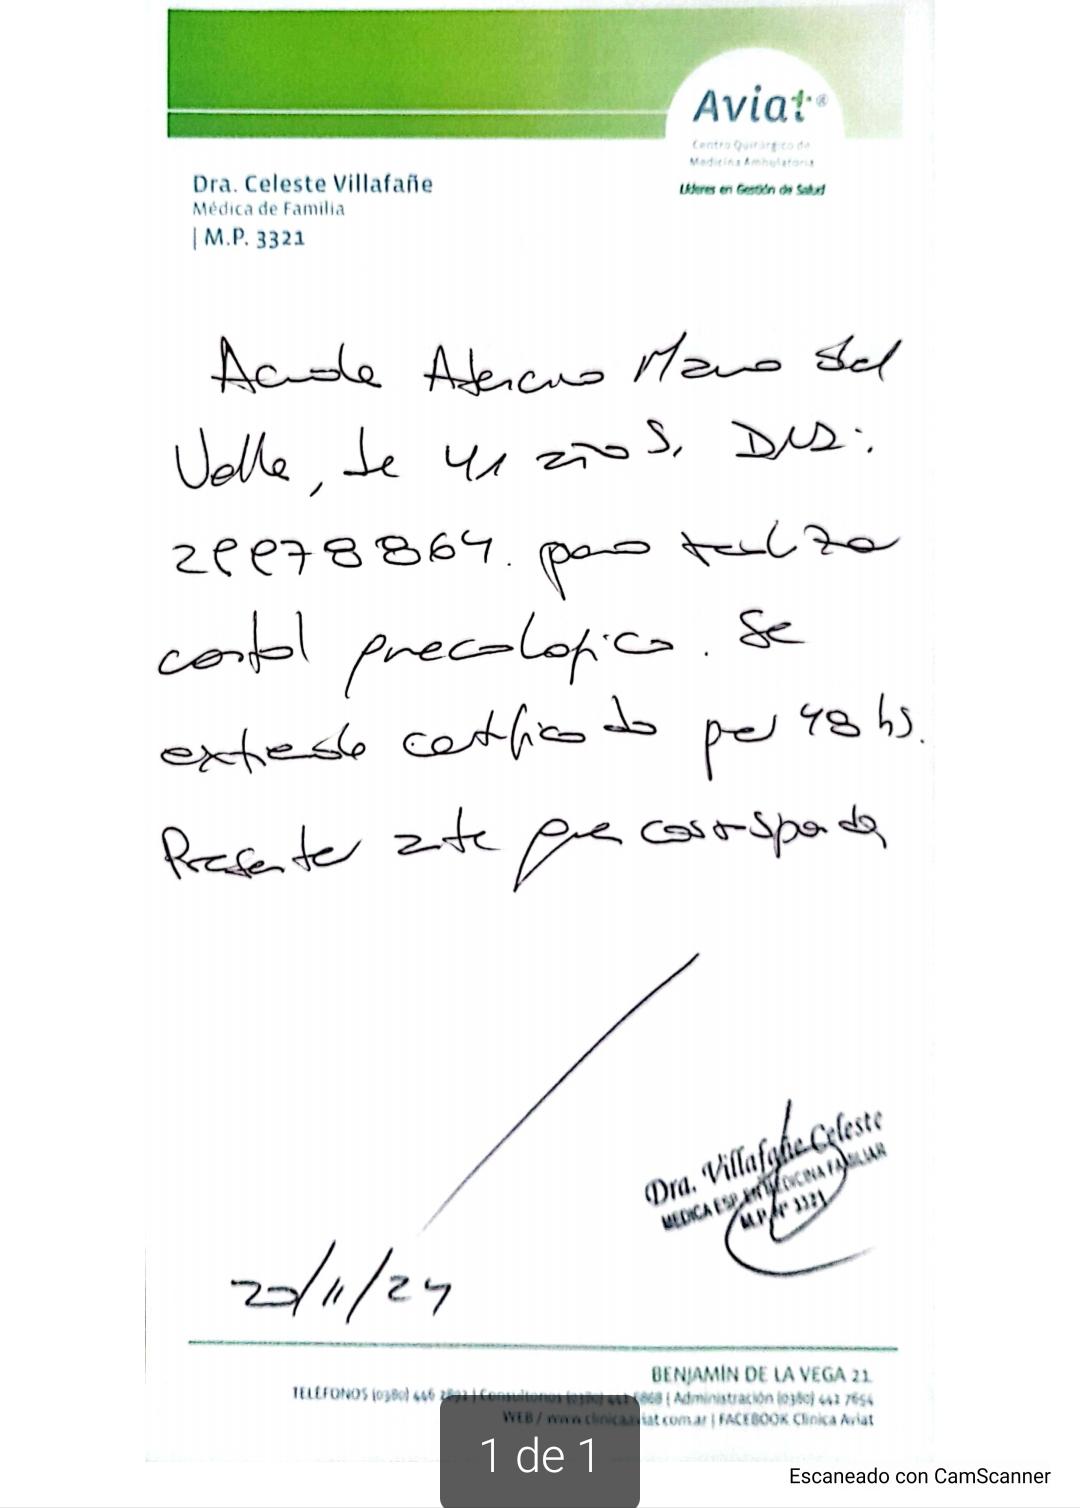 Aviat®
Centro Quirúrgico de
Medicina Ambulatoria
Líderes en Gestión de Salud
Dra. Celeste Villafañe
Médica de Familia
| M.P. 3321
Acude
Valle, de 41 años, DNI:
29978864. para realizar
control ginecologico. Se
extiende certificado por 48 hs.
Presentar ante que corresponda
Dra. Villafañe Celeste
MEDICA ESP. EN MEDICINA FAMILIAR
M.P. N° 3321
20/11/24
BENJAMÍN DE LA VEGA 21
TELÉFONOS (0380) 446 2892 | Consultorios 6868 | Administración (0380) 442 7654
WEB / www.clinicaaviat.com.ar | FACEBOOK Clinica Aviat
1 de 1
Escaneado con CamScanner